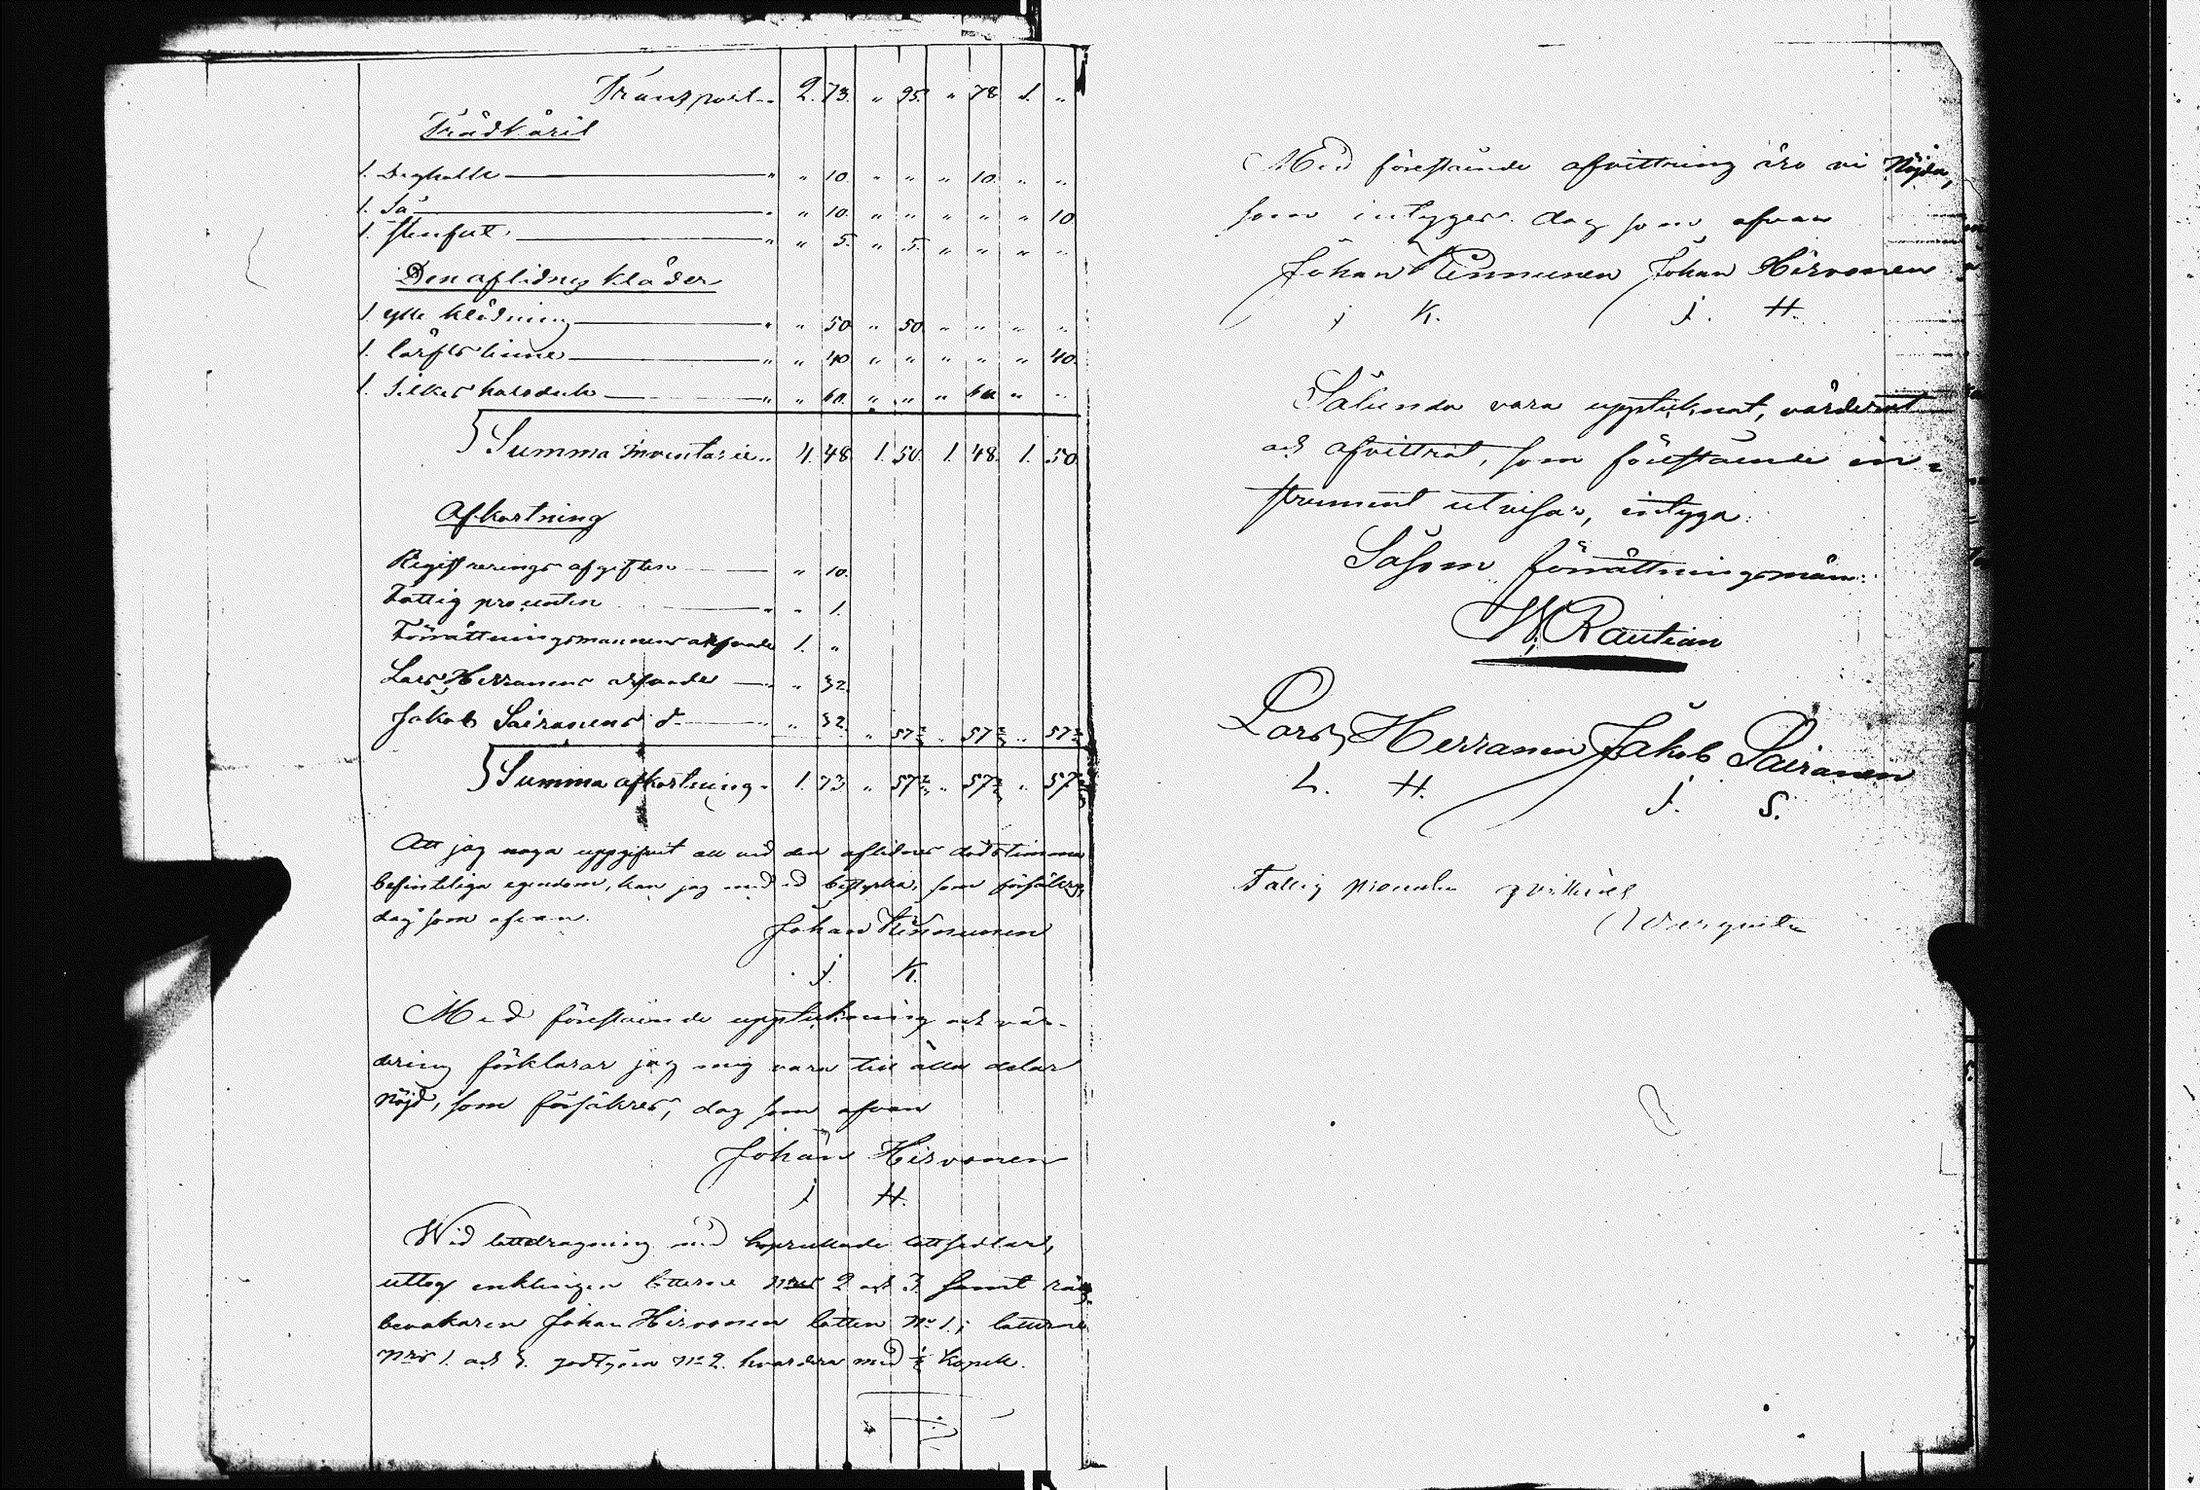 Transport 2. 73. " 95. " 78 1. "
Trädkäril
1. Deghvllk " " 10. " " " 10. " "
1. Så " " 10. " " " " " 10
1. stenfat " " 5. " 5. " " " "
Den aflidnes kläder
1. ylle klädning " " 50 " 50 " " " "
1. lärfts linne " " 40 " " " " " 40.
1. Silkes halsduk " " 60. " " " 60 " "
Summa inventarie 4. 48. 1. 50. 1. 48. 1. 50.
Afkortning
Registrerings afgiften " 10.
Fattig procenten " 1.
Förrättningsmannens arfvode 1. "
Lars Herranens arfvode " 32.
Jakob Sairanens d " 32. " 57 2/3 " 57 2/3 " 57 2/3
Summa afkortning 1. 73 " 57 2/3 " 57 2/3 " 57 2/3
Att jag noga uppgifvit all vid den aflidnes dödstimma
befintliga egendom, kan jag med ed bestyrka, som försäkras,
dag som ofvan.
Johan Kinnunen
J. K.
Med förestående uppteckning och vär-
dering förklarar jag mig vara till alla delar
nöjd, som försäkras, dag som ofvan
Johan Hirvonen
J H.
Wid lottdragning med hoprullade lottsedlar,
uttog enklingen lotterne N:ris 2 och 3 samt rätts-
bevakaren Johan Hirvonen lotten N:o 1.; lotterne
N:ris 1. och 3. godtgöra N:o 2. hvardera med kopek.
Med förestående afvittring äro vi Nöjda,
som intygas dag som ofvan
Johan Kinnunen Johan Hirvonen
j K. J. H.
Sålunda vara upptecknat, värderat
och afvittrat, som förestående in-
strument utvisar, intyga.
Såsom förrättningsmän:
W. Rautian
Lars Herranen Jakob Sairanen
L. H. J. S.
Fattig procenten qvitteras